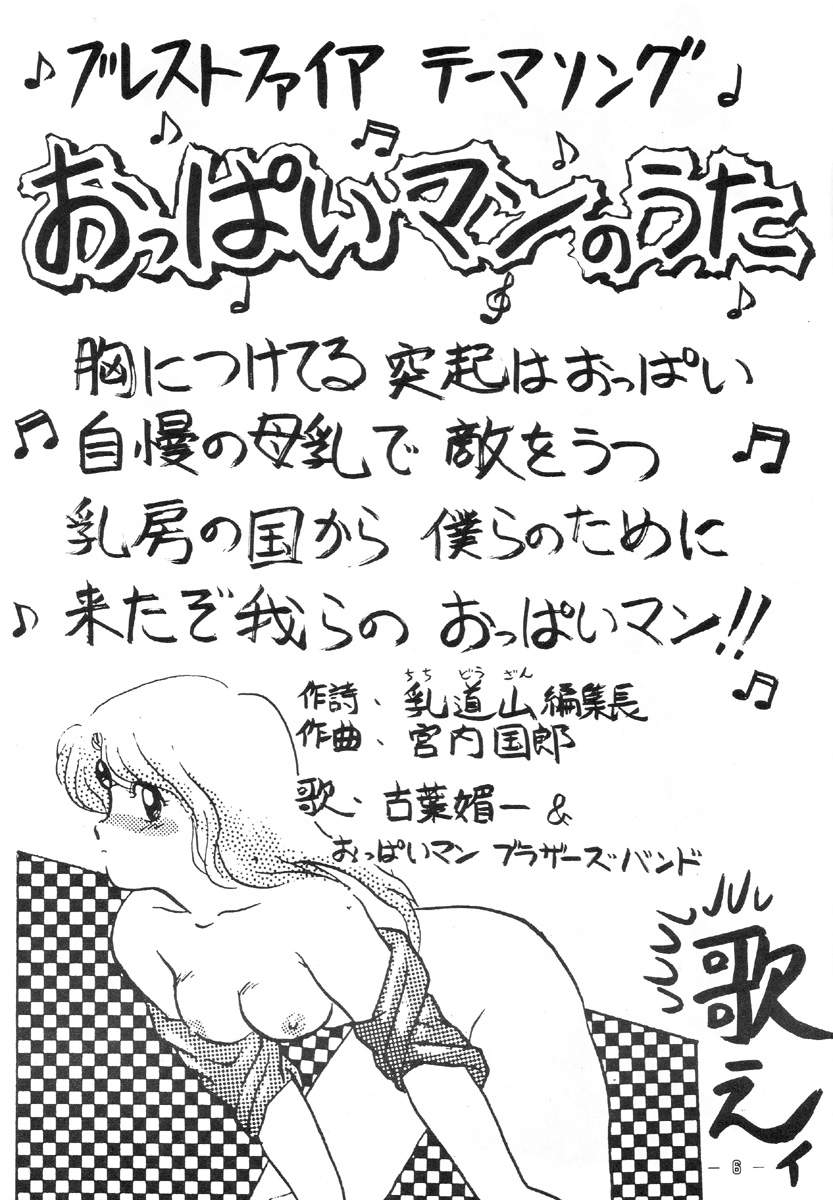 ブレストファイア テーマソング
おっぱいマンのうた
胸につけてる 突起はおっぱい
自慢の母乳で 敵をうつ
乳房の国から 僕らのために
来たぞ我らの おっぱいマン!!
ちち どう ざん
作詩、乳道山編集長
作曲、宮内国郎
歌、古葉媚一&
おっぱいマン ブラザーズ・バンド
歌えィ
- 6 -